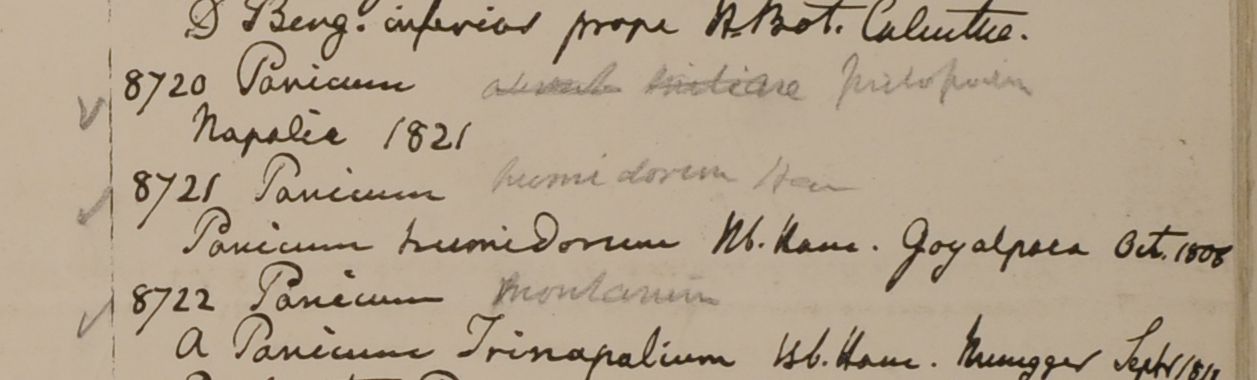 D Beng. inferior prope H. Bot. Calcuttae.
8720 Panicum miliare psilopodium
Napalia 1821
8721 Panicum humidorum Ham
Panicum humidorum Hb. Ham. Goyalpara Oct. 1808
8722 Panicum montanum
A Panicum Trinapalium Hb. Ham. Mungger Sept 1811